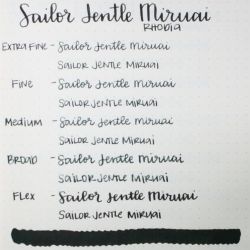 Sailor Jentle Miruai
RHODIA
EXTRA FINE - Sailor Jentle Miruai
SAILOR JENTLE MIRUAI
FINE - Sailor Jentle Miruai
SAILOR JENTLE MIRUAI
MEDIUM - Sailor Jentle Miruai
SAILOR JENTLE MIRUAI
BROAD - Sailor Jentle Miruai
SAILOR JENTLE MIRUAI
FLEX - Sailor Jentle Miruai
SAILOR JENTLE MIRUAI